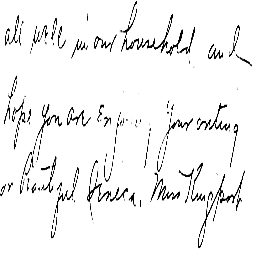 all well in our household and
hope you are enjoying your outing
on Beautiful Seneca. Miss Kingport